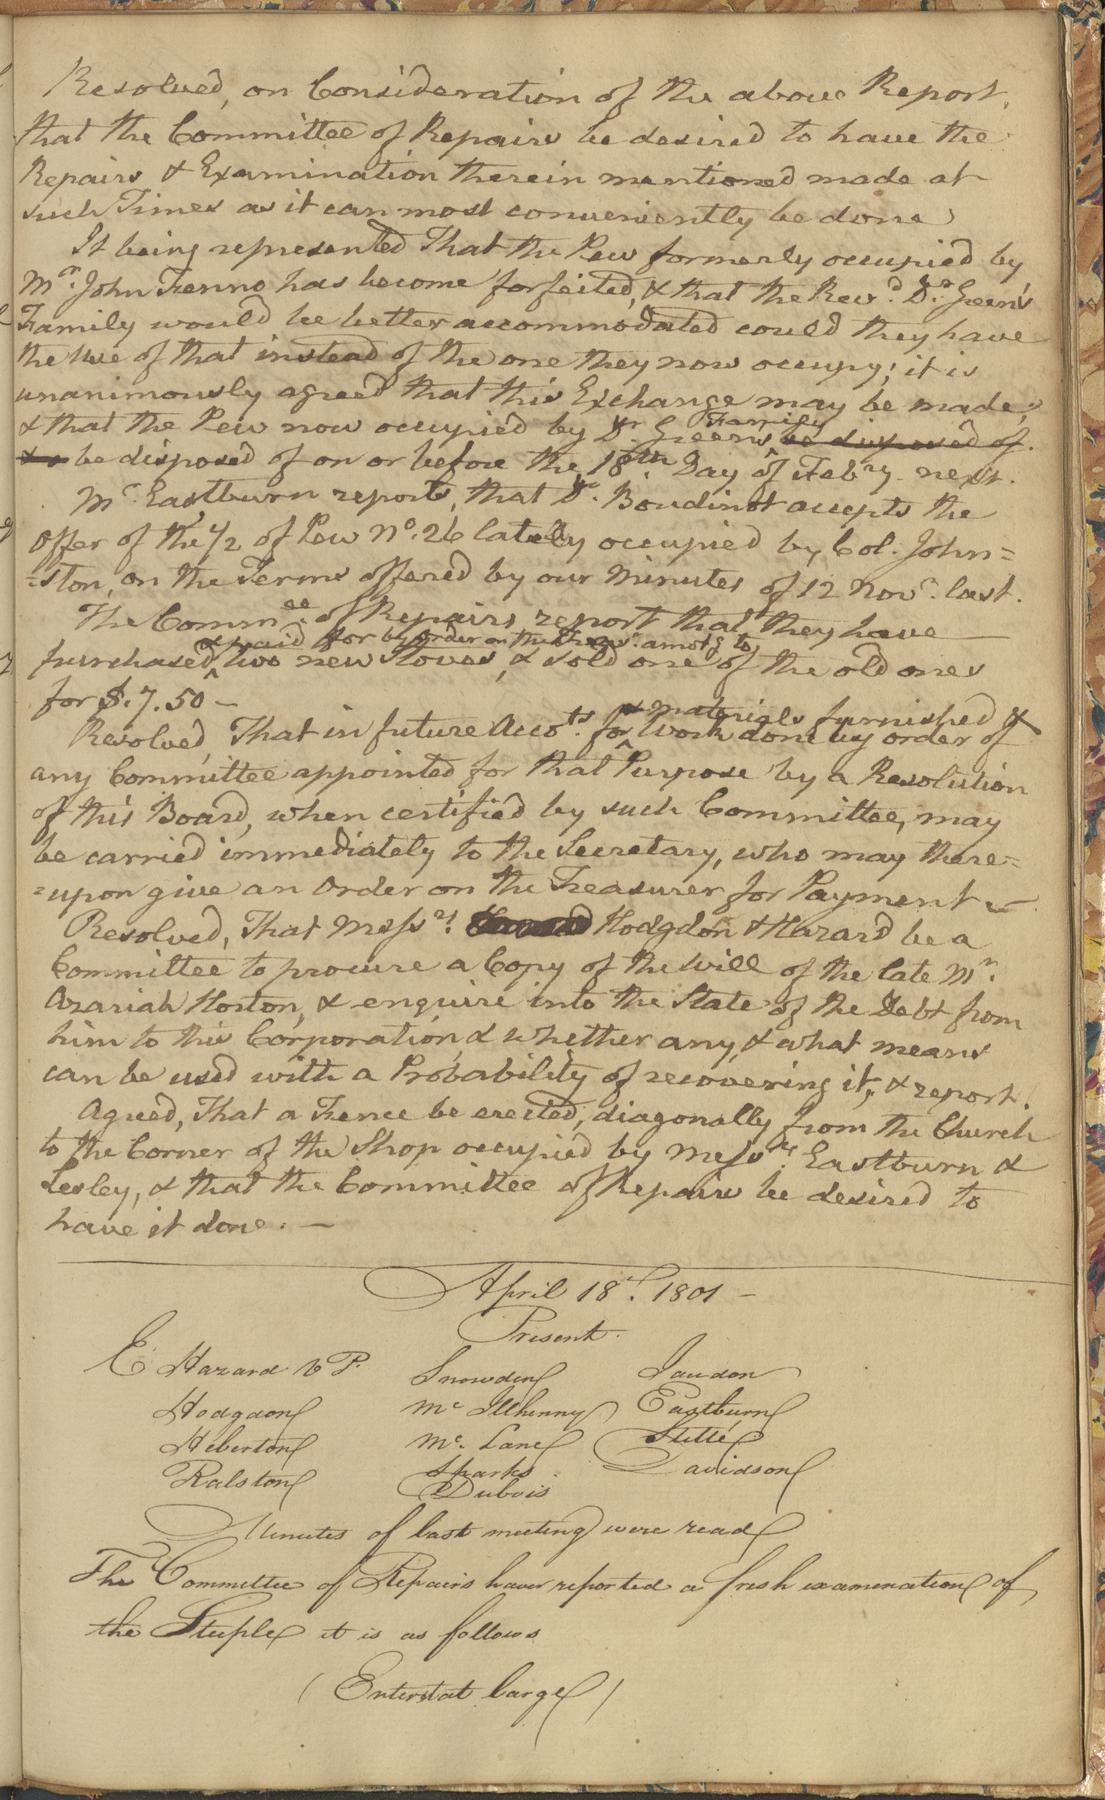 Resolved, on Consideration of the above Report,
that the Committee of Repairs be desired to have the
Repairs & Examination therein mentioned made at
such Times as it can most conveniently be done
It being represented That the Pew formerly occupied by
Mr. John Fenno has become forfeited, & that the Revd. Dr. Green's
Family would be better accommodated could they have
the Use of that instead of the one they now occupy; it is
unanimously agreed that this Exchange may be made;
& that the Pew now occupied by Dr. Green's Family be disposed of
be disposed of on or before the 18th. Day of Feby. next.
Mr. Eastburn reports, that Dr. Boudinot accepts the
Offer of the 1/2 of Pew No. 26 lately occupied by Col. John=
=ston, on the Terms offered by our Minutes of 12 Novr. last.
The Commee. of Repairs report that they have
& paid for by order on the Treasr. amotg to
purchased two new Stoves, & sold one of the old ones
for $.7.50 –
& materials furnished &
Resolved, That in future Accots. for Work done by order of
any Committee appointed for that Purpose by a Resolution
of this Board, when certified by such Committee, may
be carried immediately to the Secretary, who may there=
=upon give an Order on the Treasurer for Payment –
Resolved, That Messrs. Hodgdon & Hazard be a
Committee to procure a Copy of the Will of the late Mr.
Azariah Horton, & enquire into the State of the Debt from
him to this Corporation, & whether any, & what means
can be used with a Probability of recovering it, & report.
Agreed, That a Fence be erected, diagonally from the Church
to the Corner of the Shop occupied by Messrs. Eastburn &
Lesley, & that the Committee of Repairs be desired to
have it done. –
April 18th. 1801 –
Present.
E Hazard VP. Snowden Jaudon
Hodgdon Mc Ilhenny Eastburn
Heberton Mc. Lane Stille
Ralston Sparks Davidson
Dubois
Minutes of last meeting were read
The Committee of Repairs have reported a fresh examination of
the Steeple it is as follows
(Enter at large)